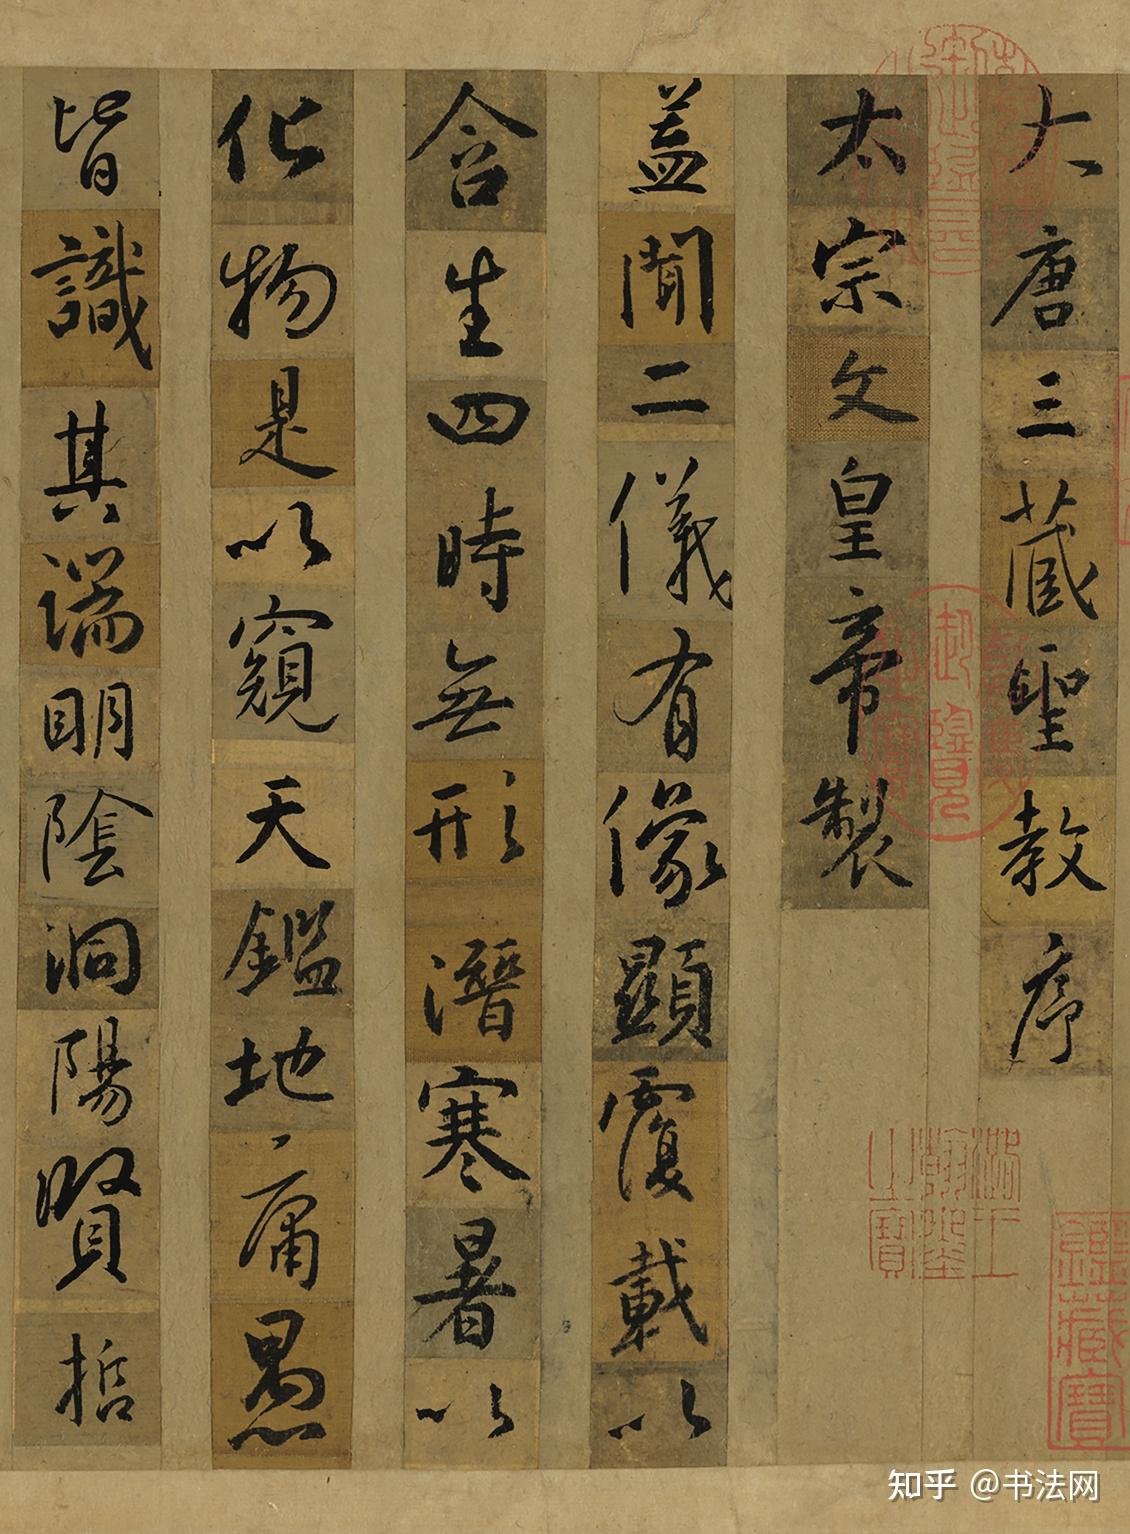 大唐三藏聖教序
太宗文皇帝製
盖聞二儀有像顯覆載以
含生四時無形潛寒暑以
化物是以窺天鑑地庸愚
皆識其端明陰洞陽賢哲
知乎 @书法网